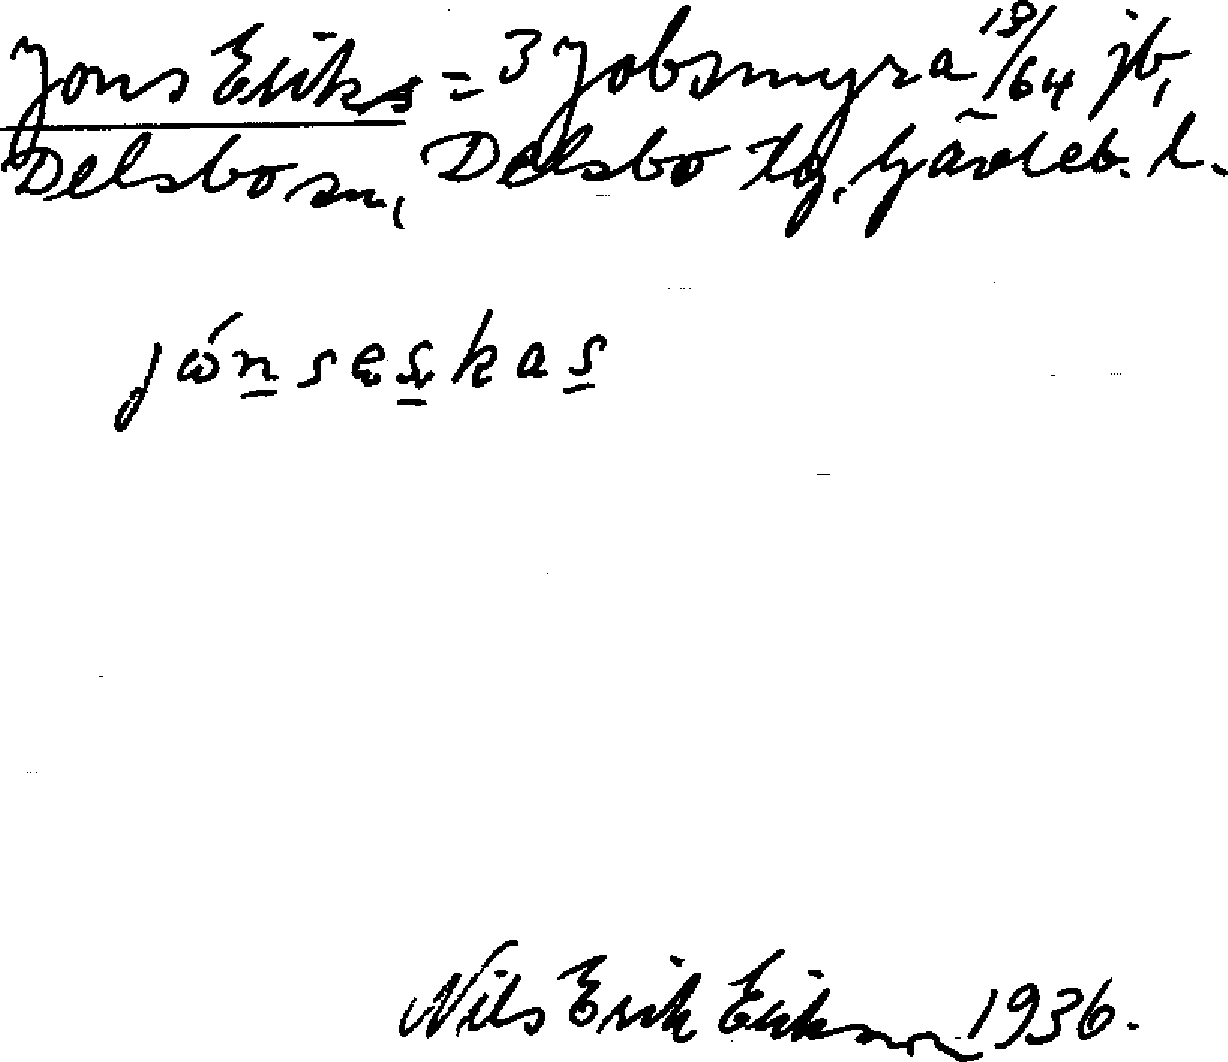 Jons Eriks = 3 Jobsmyra 13/64 jb,
Delsbo sn, Delsbo tg. Gävleb. l.
jónsęskas
Nils Erik Erikson 1936.